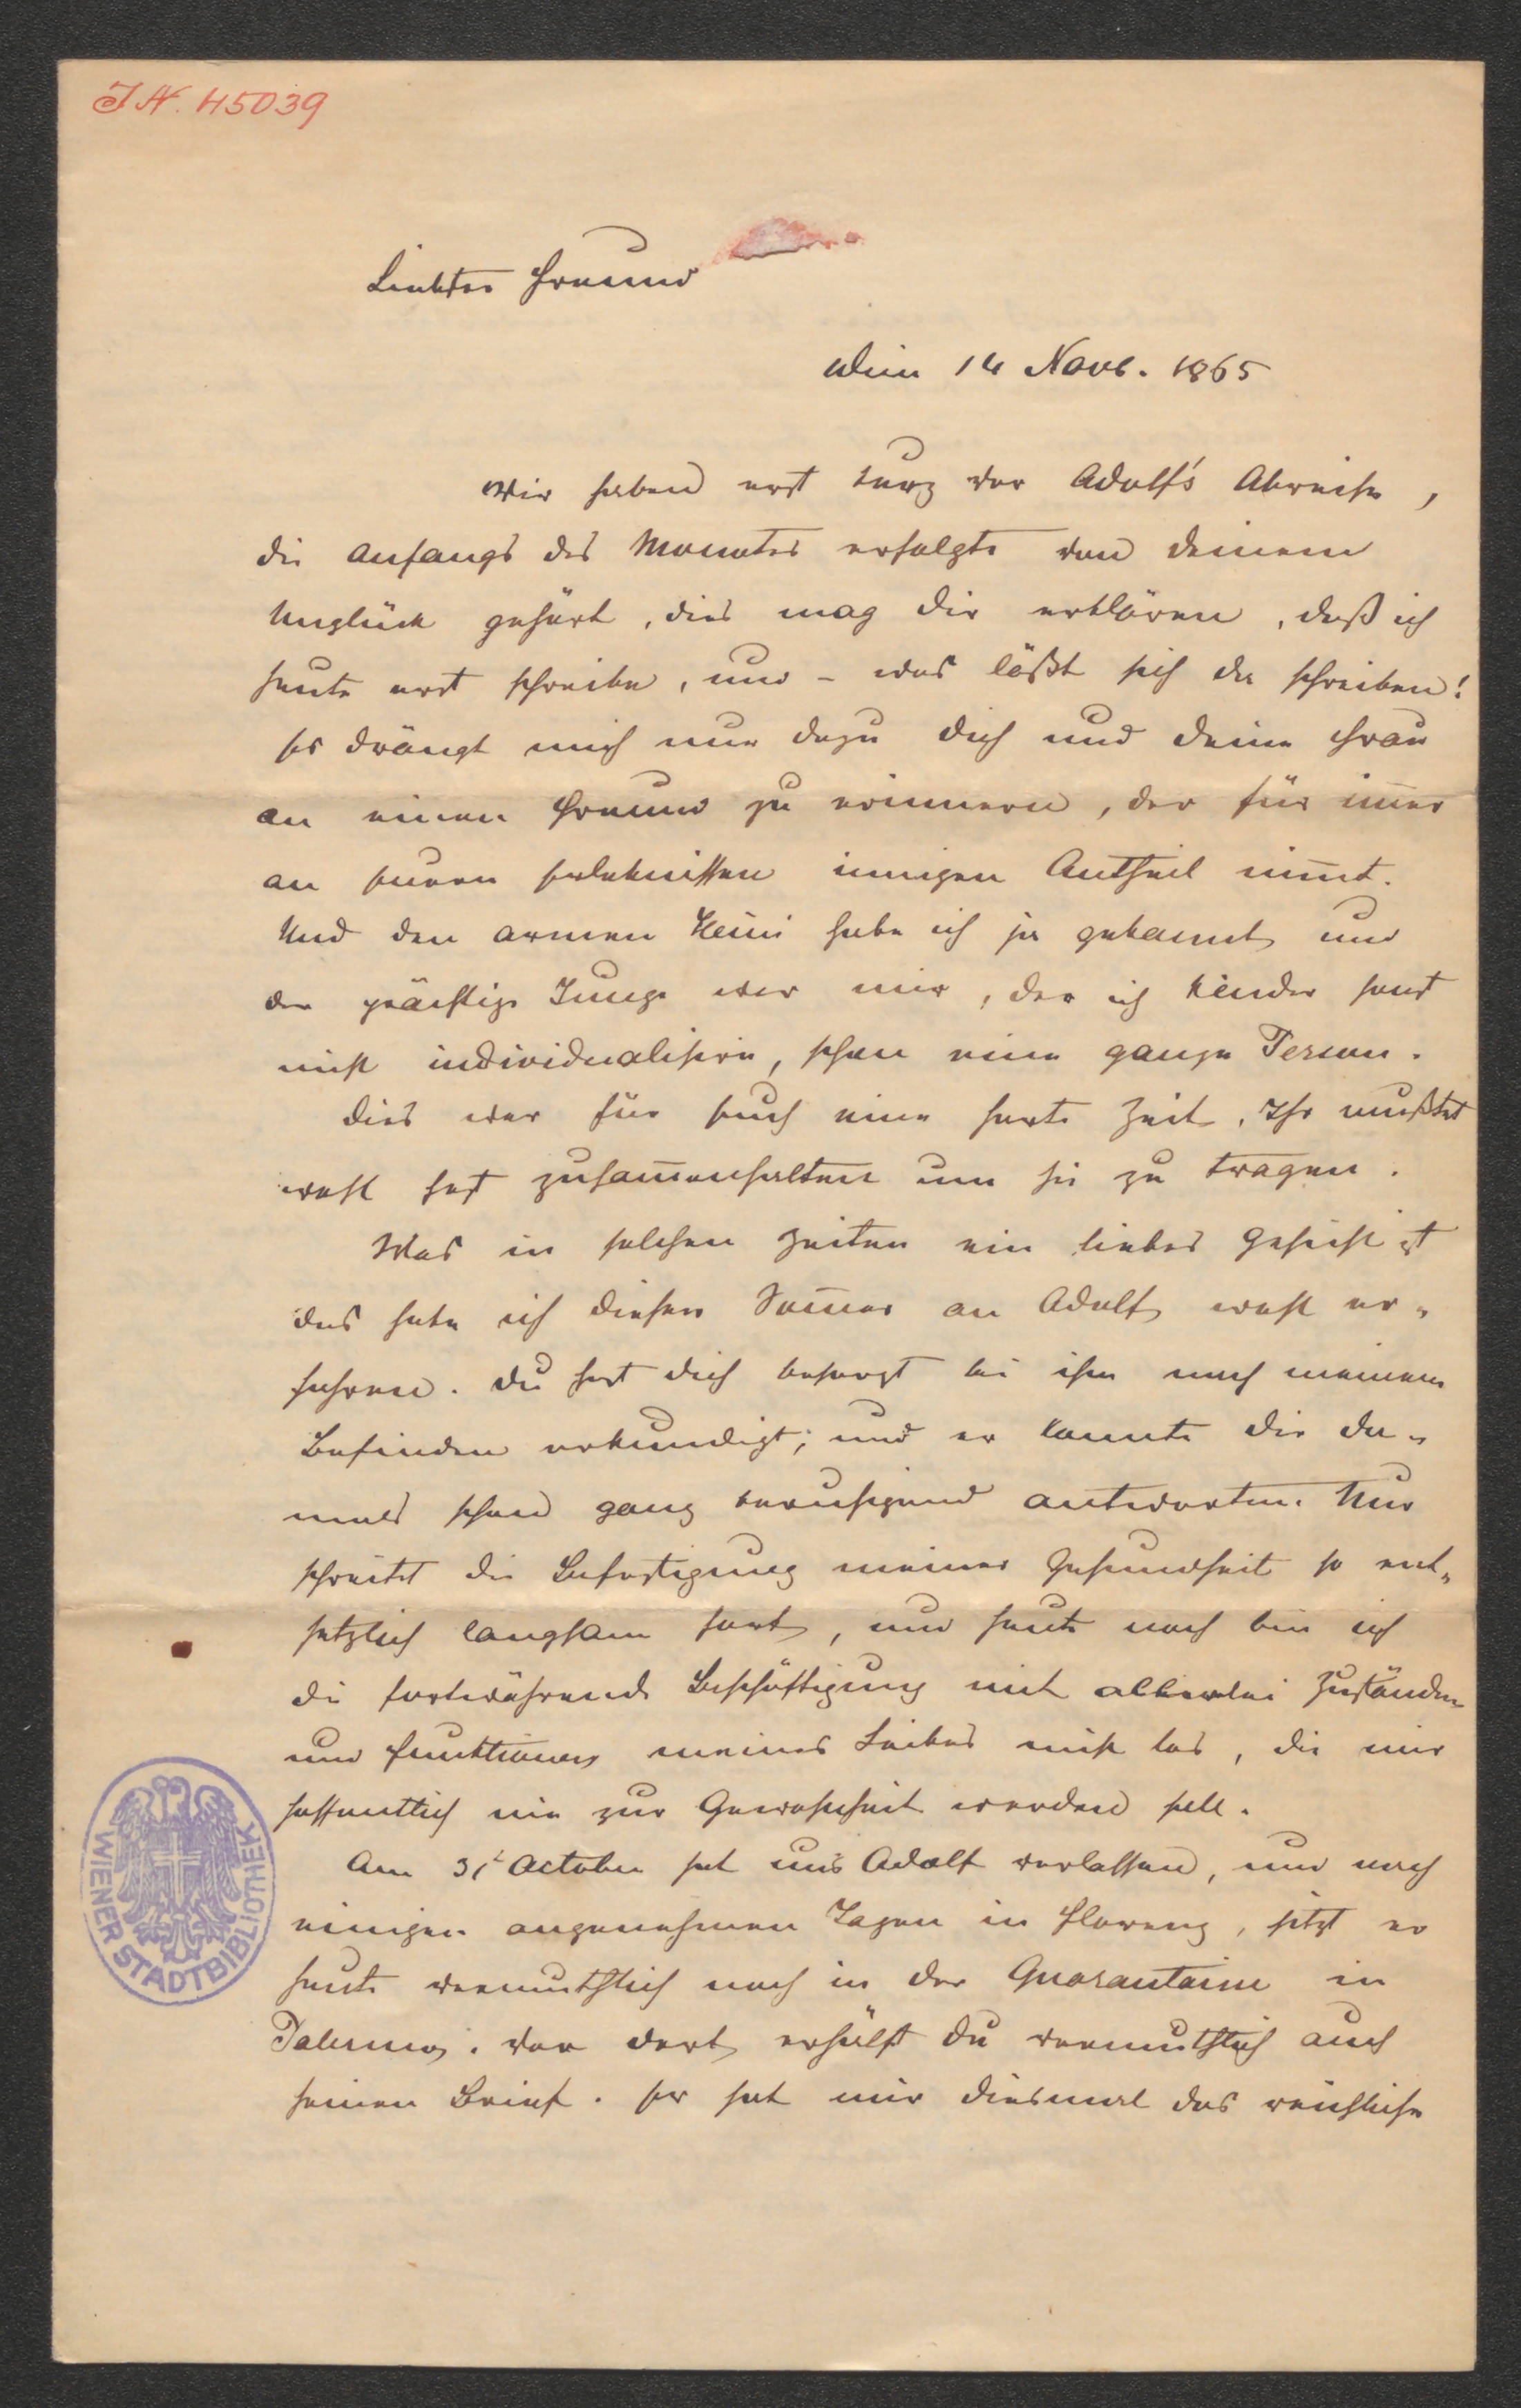 I N. 45039
Liebster Freund
Wien 14 Novb. 1865
Wir haben erst kurz vor Adolf's Abreise,
die Anfangs des Monates erfolgte von deinem
Unglück gehört, dies mag dir erklären, daß ich
heute erst schreibe, und – was läßt sich da schreiben!
Es drängt mich nur dazu dich und deine Frau
an einen Freund zu erinnern, der für im̄er
an Euren Erlebnissen innigen Antheil nim̄t.
Und den armen Heini habe ich ja gekannt und
der prächtige Junge war mir, der ich Kinder sonst
nicht individualisire, schon eine ganze Person.
Dies war für Euch eine harte Zeit, Ihr mußtet
wohl fest zusam̄enhalten um sie zu tragen.
Was in solchen Zeiten ein liebes Gesicht ist
das habe ich diesen Som̄er an Adolf wohl er„
fahren. Du hast dich besorgt bei ihm nach meinem
Befinden erkundigt; und er konnte dir da„
mals schon ganz beruhigend antworten. Nur
schreitet die Befestigung meiner Gesundheit so ent„
setzlich langsam fort, und heute noch bin ich
die fortwährende Beschäftigung mit allerlei Zuständen
und Funktionen meines Leibes nicht los, die mir
hoffentlich nie zur Gewohnheit werden soll.
Am 31t October hat uns Adolf verlassen, und nach
einigen angenehmen Tagen in Florenz, sitzt er
heute vermuthlich noch in der Quarantaine in
Palermo. Von dort erhälst du vermuthlich auch
seinen Brief. Er hat mir diesmal das reichliche
WIENER STADTBIBLIOTHEK